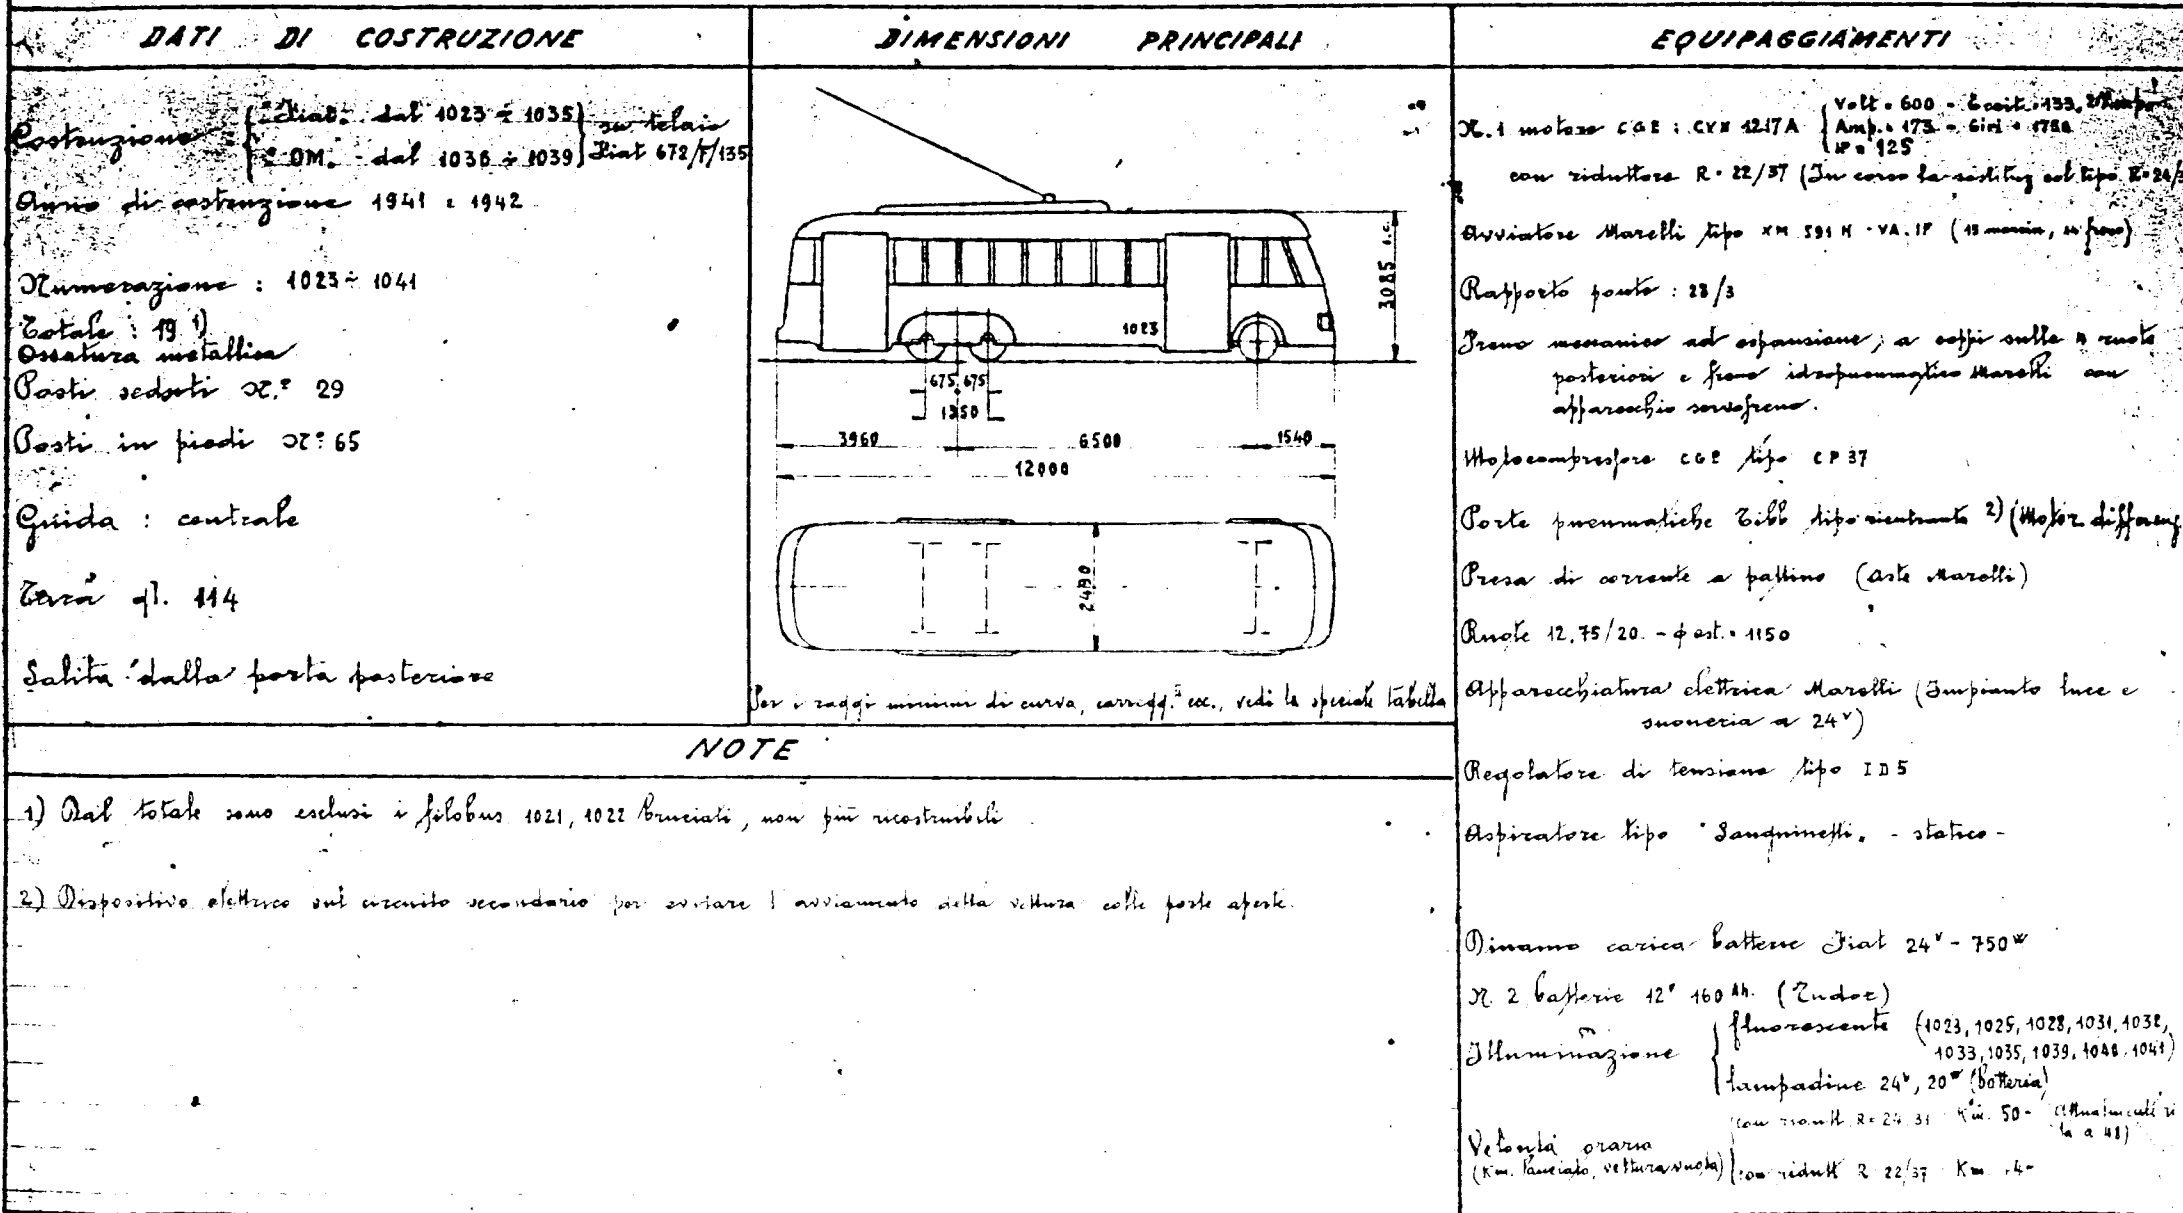 DATI DI COSTRUZIONE
Costruzione
"Fiat" dal 1023 ÷ 1035
"OM" - dal 1036 ÷ 1039
su telaio
Fiat 672/F/135
Anno di costruzione 1941 e 1942
Numerazione : 1023 ÷ 1041
Totale : 19 1)
Ossatura metallica
Posti seduti N.° 29
Posti in piedi N° 65
Guida : centrale
Tara ql. 114
Salita dalla porta posteriore
DIMENSIONI PRINCIPALI
3085
1023
675 675
1350
3960 6500 1540
12000
Per i raggi minimi di curva, carregg. ecc., vedi la speciale tabella
EQUIPAGGIAMENTI
N. 1 motore CGE : CVX 1217A
Volt = 600 - Eccit. = 133,
Amp. = 173 - Giri = 1750
HP = 125
con riduttore R = 22/37 (In corso la sostituz col tipo R=24/
Avviatore Marelli tipo XM 591 H - VA. (13 marcia, freno)
Rapporto ponte : 28/3
Freno meccanico ad espansione, a ceppi sulle 4 ruote
posteriori e freno idropneumatico Marelli con
apparecchio servofreno.
Motocompressore CGE tipo CP 37
Porte pneumatiche Tibb tipo rientrante 2) (Motor differenz
Presa di corrente a pattino (aste Marelli)
Ruote 12.75/20 - ϕ est. = 1150
Apparecchiatura elettrica Marelli (Impianto luce e
suoneria a 24V)
Regolatore di tensione tipo ID5
Aspiratore tipo "Sanguinetti" - statico -
Dinamo carica batterie Fiat 24V - 750W
N. 2 batterie 12V 160 Ah. (Tudor)
Illuminazione
fluorescente (1023, 1025, 1028, 1031, 1032,
1033, 1035, 1039, 1040, 1041)
lampadine 24V, 20W (batteria)
Velocità oraria
(Km. lanciato, vettura vuota)
con ridutt R = 24 31 Km. 50 - (Attualmente
la a 48)
con ridutt R 22/37 Km
NOTE
1) Dal totale sono esclusi i filobus 1021, 1022 bruciati, non più ricostruibili
2) Dispositivo elettrico sul circuito secondario per evitare l'avviamento della vettura colle porte aperte.